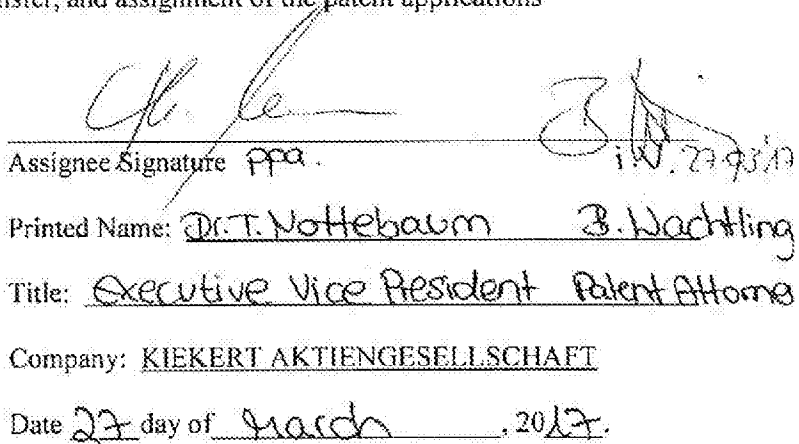 and assignment of the patent applications
Assignee Signature ppa. i.V. 27.03.17
Printed Name: Dr. T. Nottebaum B. Wachtling
Title: Executive Vice President Patent Attorne
Company: KIEKERT AKTIENGESELLSCHAFT
Date 27 day of March, 2017.